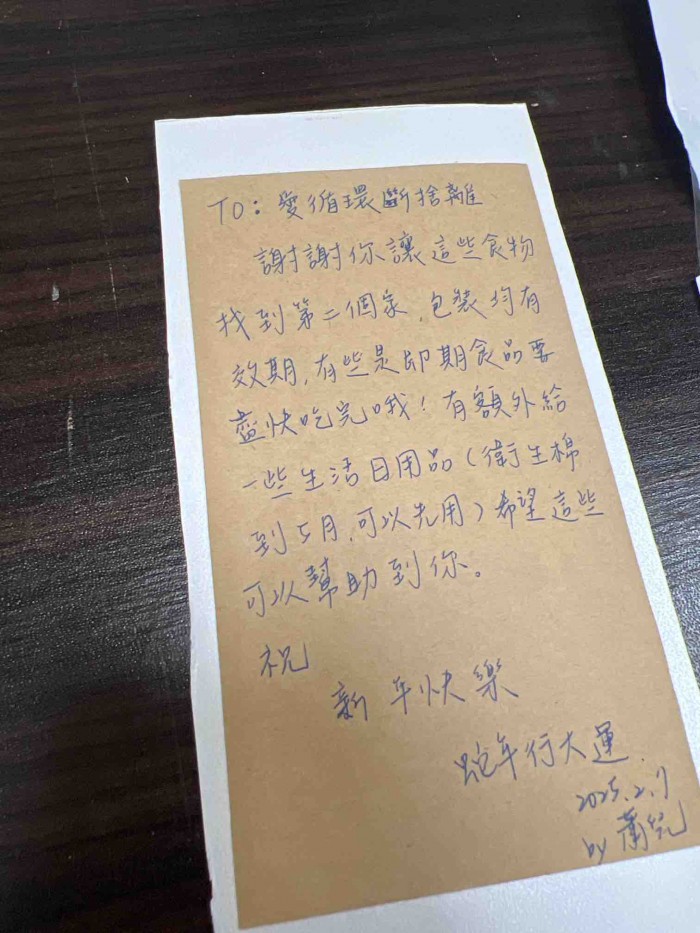 TO：愛循環斷捨離
謝謝你讓這些食物
找到第二個家，包裝均有
效期，有些是即期食品要
盡快吃完哦！有額外給
一些生活日用品（衛生棉
到5月，可以先用）希望這些
可以幫助到你。
祝
新年快樂
蛇年行大運
2025.2.7
by 蕭